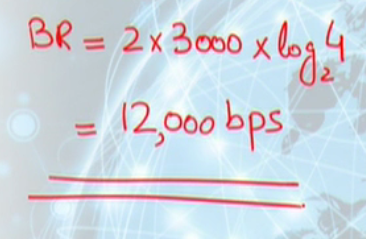 BR = 2 x 3000 x log₂4
= 12,000 bps